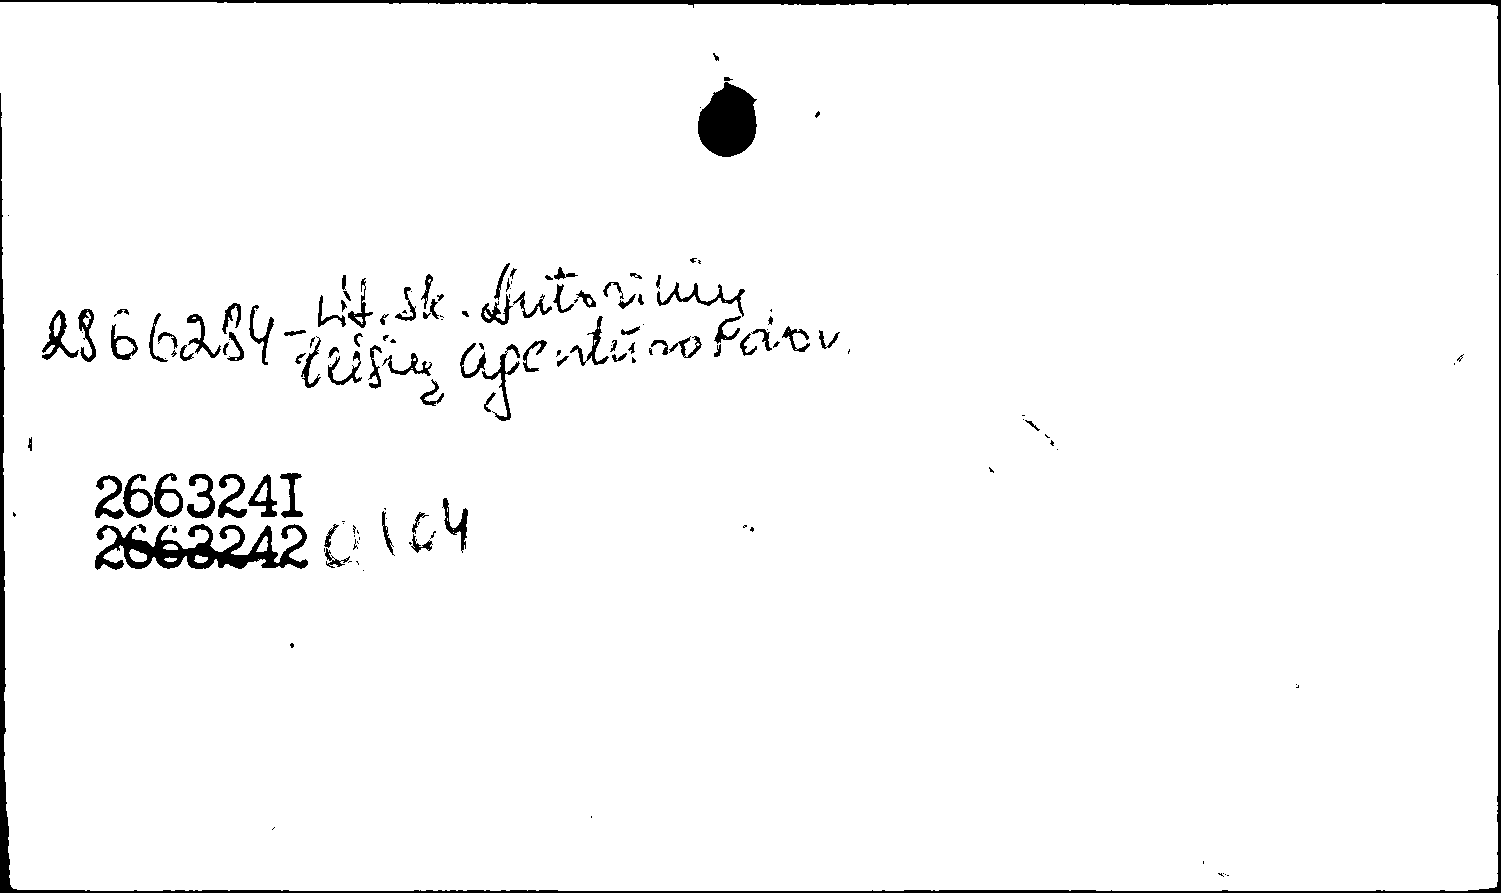 2866284-Lit.sk. Autorinių
teisių agentūros dov.
266324I
2663242 0104